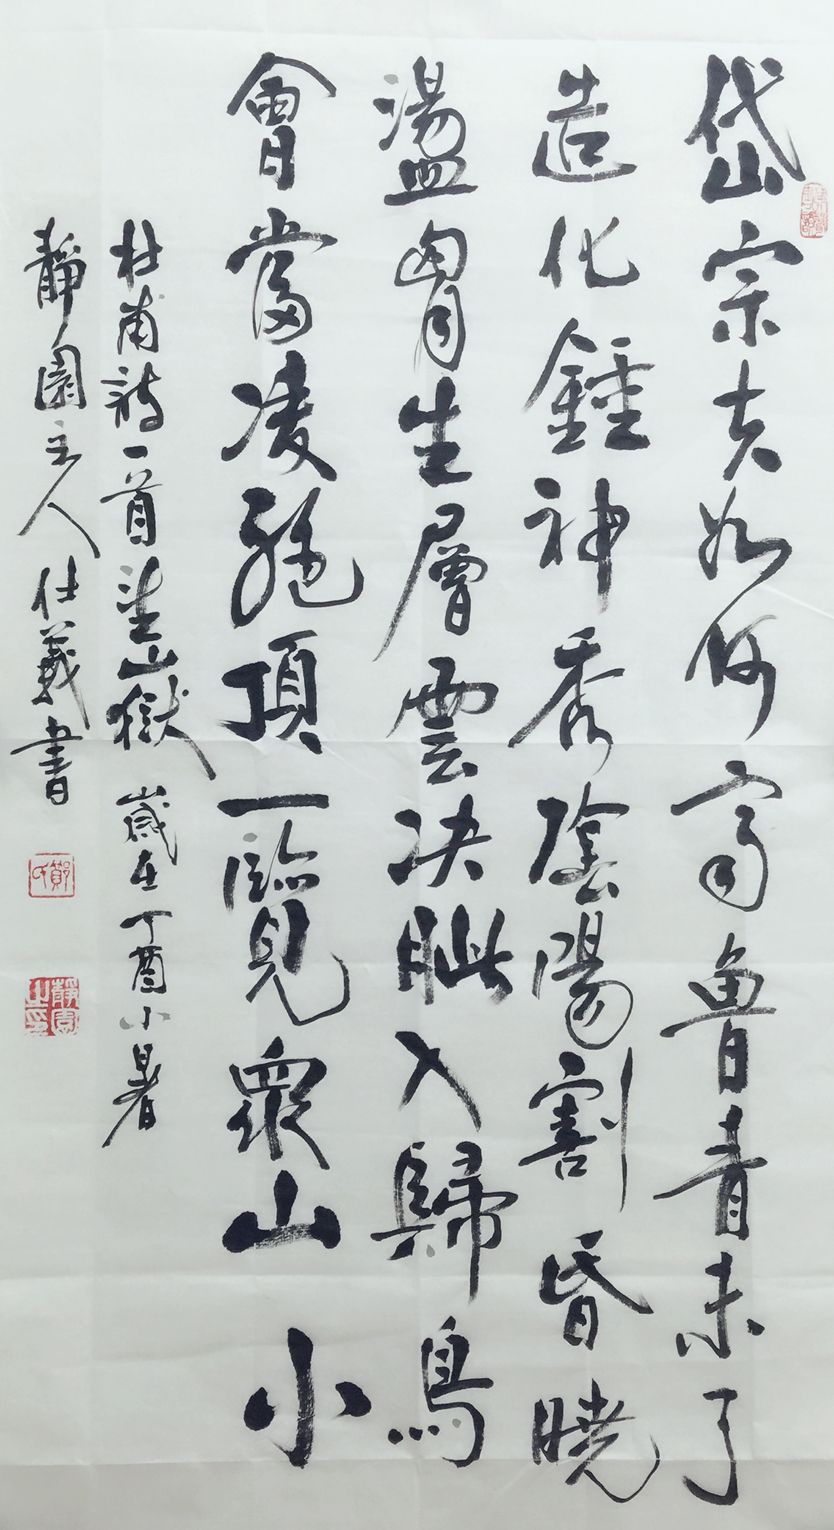 岱宗夫如何齊魯青未了
造化鍾神秀陰陽割昏曉
盪胷生層雲决眦入歸鳥
會當凌絕頂一覽衆山小
杜甫詩一首望山嶽 歲在丁酉小暑
靜園主人仕義書
鄭氏
靜園之印